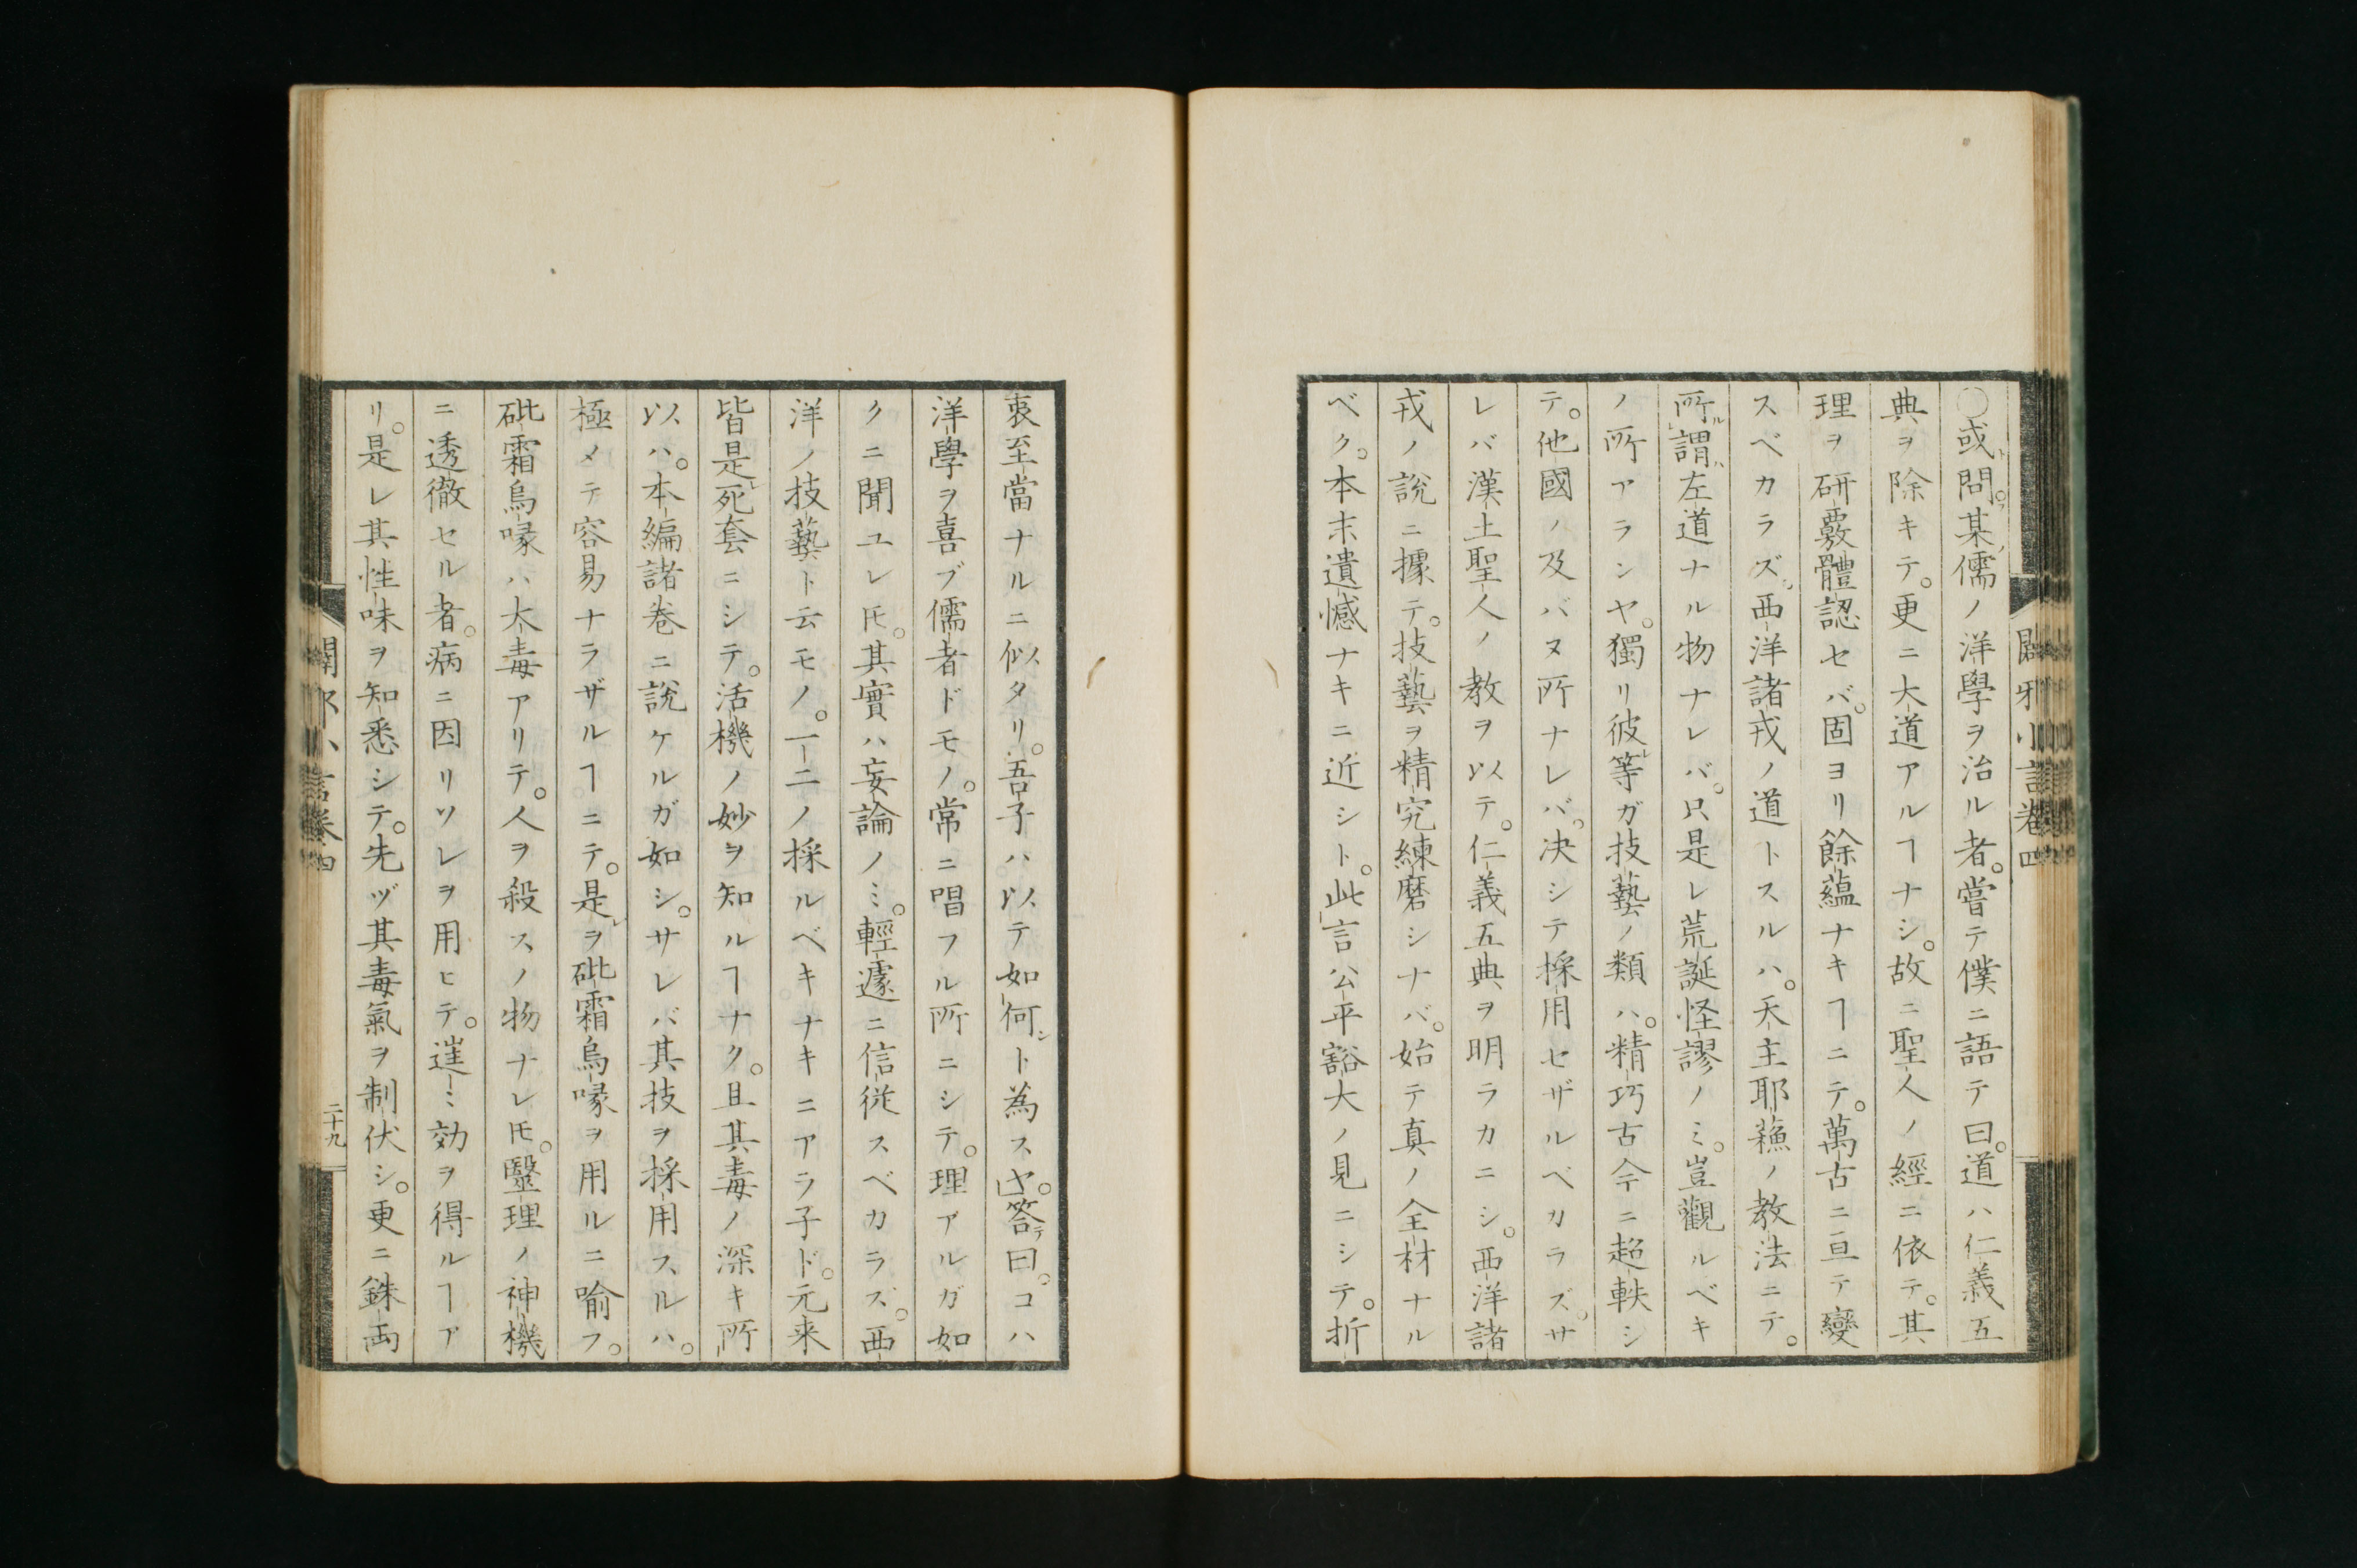 闢邪小言卷四
○或問。某儒ノ洋學ヲ治ル者。嘗テ僕ニ語テ曰。道ハ仁義五
典ヲ除キテ。更ニ大道アルヿナシ。故ニ聖人ノ經ニ依テ。其
理ヲ研覈體認セバ。固ヨリ餘蘊ナキヿニテ。萬古ニ亘テ變
スベカラズ。西洋諸戎ノ道トスルハ。天主耶蘓ノ教法ニテ。
所謂左道ナル物ナレバ。只是レ荒誕怪謬ノミ。豈觀ルベキ
ノ所アランヤ。獨リ彼等ガ技藝ノ類ハ。精巧古今ニ超軼シ
テ。他國ノ及バヌ所ナレバ。决シテ採用セザルベカラズ。サ
レバ漢土聖人ノ教ヲ以テ。仁義五典ヲ明ラカニシ。西洋諸
戎ノ說ニ據テ。技藝ヲ精究練磨シナバ。始テ真ノ全材ナル
ベク。本末遺憾ナキニ近シト。此言公平豁大ノ見ニシテ。折
衷至當ナルニ似タリ。吾子ハ以テ如何ト為スヤ。答曰。コハ
洋學ヲ喜ブ儒者ドモノ。常ニ唱フル所ニシテ。理アルガ如
クニ聞ユレ𪜈。其實ハ妄論ノミ。輕遽ニ信従スベカラズ。西
洋ノ技藝ト云モノ。一二ノ採ルベキナキニアラ子ド。元来
皆是死套ニシテ。活機ノ妙ヲ知ルヿナク。且其毒ノ深キ所
以ハ。本編諸卷ニ說ケルガ如シ。サレバ其技ヲ採用スルハ。
極メテ容易ナラザルヿニテ。是ヲ砒霜烏喙ヲ用ルニ喻フ。
砒霜烏喙ハ大毒アリテ。人ヲ殺スノ物ナレ𪜈。毉理ノ神機
ニ透徹セル者。病ニ因リソレヲ用ヒテ。往〻効ヲ得ルヿア
リ。是レ其性味ヲ知悉シテ。先ヅ其毒氣ヲ制伏シ。更ニ銖両
闢邪小言卷四
二十九